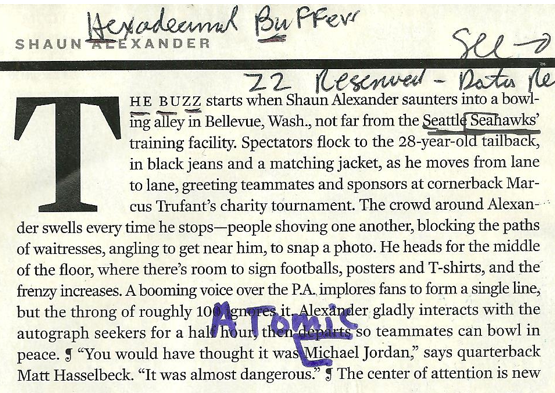 Hexadecimal Buffer
SHAUN ALEXANDER
See →
22 Reserved - Data Re
THE BUZZ starts when Shaun Alexander saunters into a bowl-
ing alley in Bellevue, Wash., not far from the Seattle Seahawks’
training facility. Spectators flock to the 28-year-old tailback,
in black jeans and a matching jacket, as he moves from lane
to lane, greeting teammates and sponsors at cornerback Mar-
cus Trufant’s charity tournament. The crowd around Alexan-
der swells every time he stops—people shoving one another, blocking the paths
of waitresses, angling to get near him, to snap a photo. He heads for the middle
of the floor, where there’s room to sign footballs, posters and T-shirts, and the
frenzy increases. A booming voice over the P.A. implores fans to form a single line,
but the throng of roughly 100 ignores it. Alexander gladly interacts with the
ATomic
autograph seekers for a half hour, then departs so teammates can bowl in
peace. ¶ “You would have thought it was Michael Jordan,” says quarterback
Matt Hasselbeck. “It was almost dangerous.” ¶ The center of attention is new